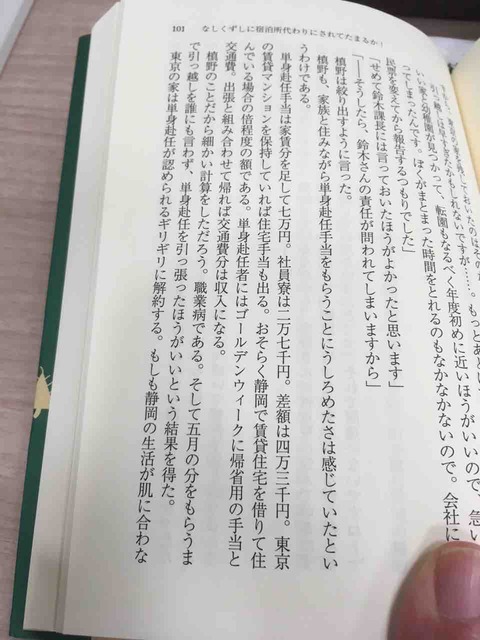 101　なしくずしに宿泊所代わりにされてたまるか！
引っ越しは早すぎたかもしれないですが……。もっとあとい
いい家と幼稚園が見つかって、転園もなるべく年度初めに近いほうがいいので、急い
つてしまったんです。ぼくがまとまった時間をとれるのもなかなかないので。会社に
民票を変えてから報告するつもりでした」
「せめて鈴木課長には言っておいたほうがよかったと思います」
「――そうしたら、鈴木さんの責任が問われてしまいますから」
槙野は絞り出すように言った。
槙野も、家族と住みながら単身赴任手当をもらうことにうしろめたさは感じていたとい
うわけである。
単身赴任手当は家賃分を足して七万円。社員寮は二万七千円。差額は四万三千円。東京
の賃貸マンションを保持していれば住宅手当も出る。おそらく静岡で賃貸住宅を借りて住
んでいる場合の倍程度の額である。単身赴任者にはゴールデンウィークに帰省用の手当と
交通費。出張と組み合わせて帰れば交通費分は収入になる。
槙野のことだから細かい計算をしただろう。職業病である。そして五月の分をもらうま
で引っ越しを誰にも言わず、単身赴任を引っ張ったほうがいいという結果を得た。
東京の家は単身赴任が認められるギリギリに解約する。もしも静岡の生活が肌に合わな